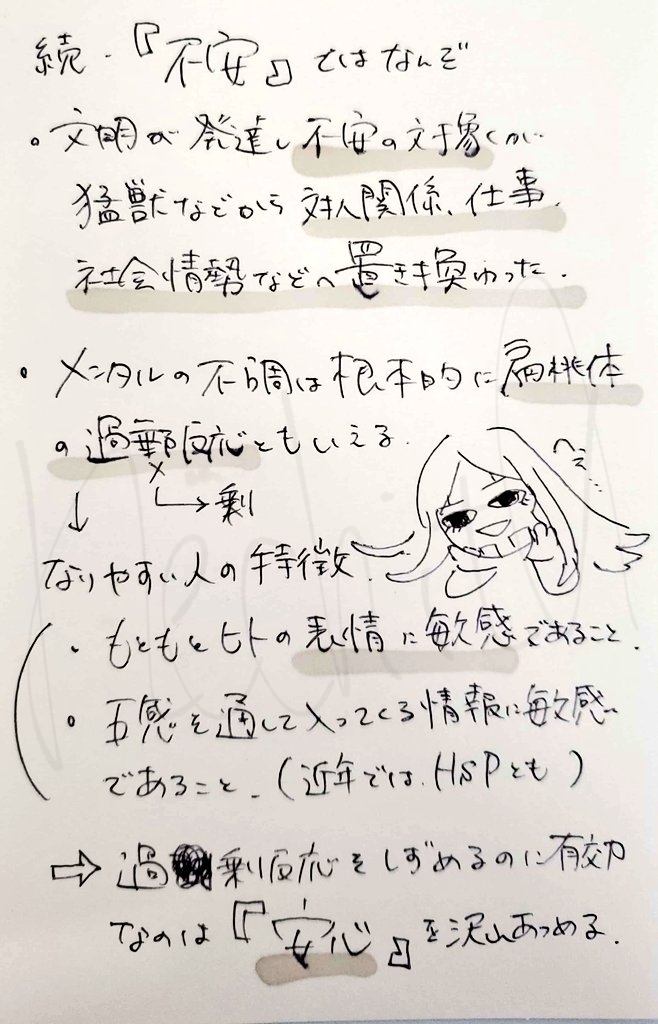 続・『不安』とはなんぞ
・文明が発達し不安の対象が
猛獣などから対人関係、仕事、
社会情勢などへ置き換わった。
・メンタルの不調は根本的に扁桃体
の過郵反応ともいえる。
×
↓ →剰
へぇ…
なりやすい人の特徴
・もともとヒトの表情に敏感であること。
・五感を通して入ってくる情報に敏感
であること。(近年では、HSPとも)
⇨ 過剰反応をしずめるのに有効
なのは『安心』を沢山あつめる。